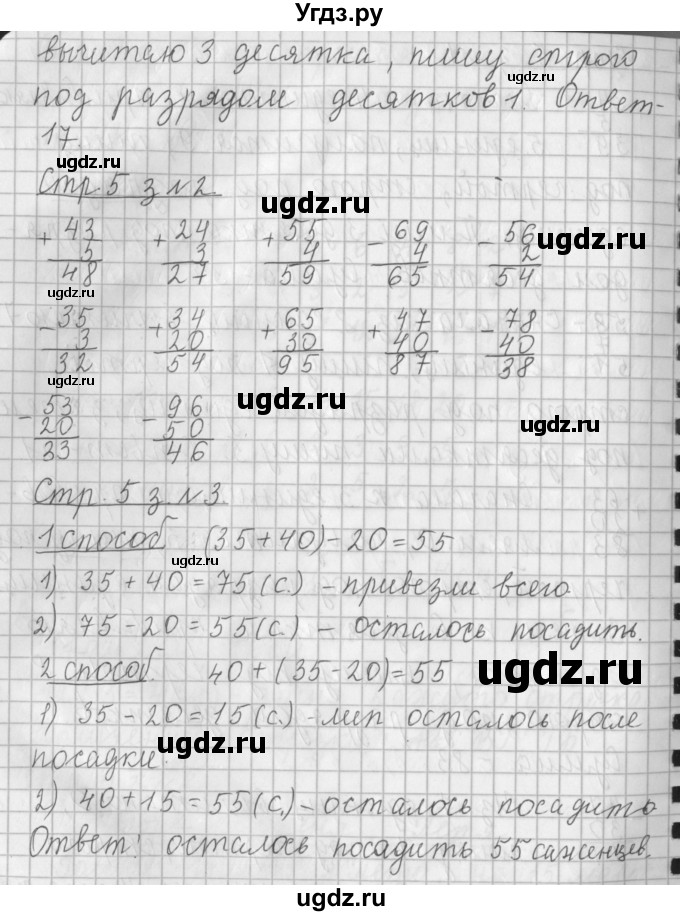 Угдз.ру
вычитаю 3 десятка, пишу строго
под разрядом десятков 1. Ответ-
17.
ugdz.ru
ugdz.ru
Стр. 5 з №2.
ugdz.ru
+ 43 + 24 + 55 - 69 - 56
5 3 4 4 2
48 27 59 65 54
ugdz.ru
- 35 + 34 + 65 + 47 - 78
3 20 30 40 40
32 54 95 87 38
ugdz.ru
- 53 - 96
20 50
33 46
ugdz.ru
ugdz.ru
Стр. 5 з. №3.
1 способ (35+40)-20=55
ugdz.ru
1) 35+40=75(с.) - привезли всего
2) 75-20=55(с.) - осталось посадить.
2 способ. 40+(35-20)=55
ugdz.ru
1) 35-20=15(с.) - лип осталось после
посадки.
ugdz.ru
2) 40+15=55(с.) - осталось посадить
Ответ: осталось посадить 55 саженцев.
ugdz.ru